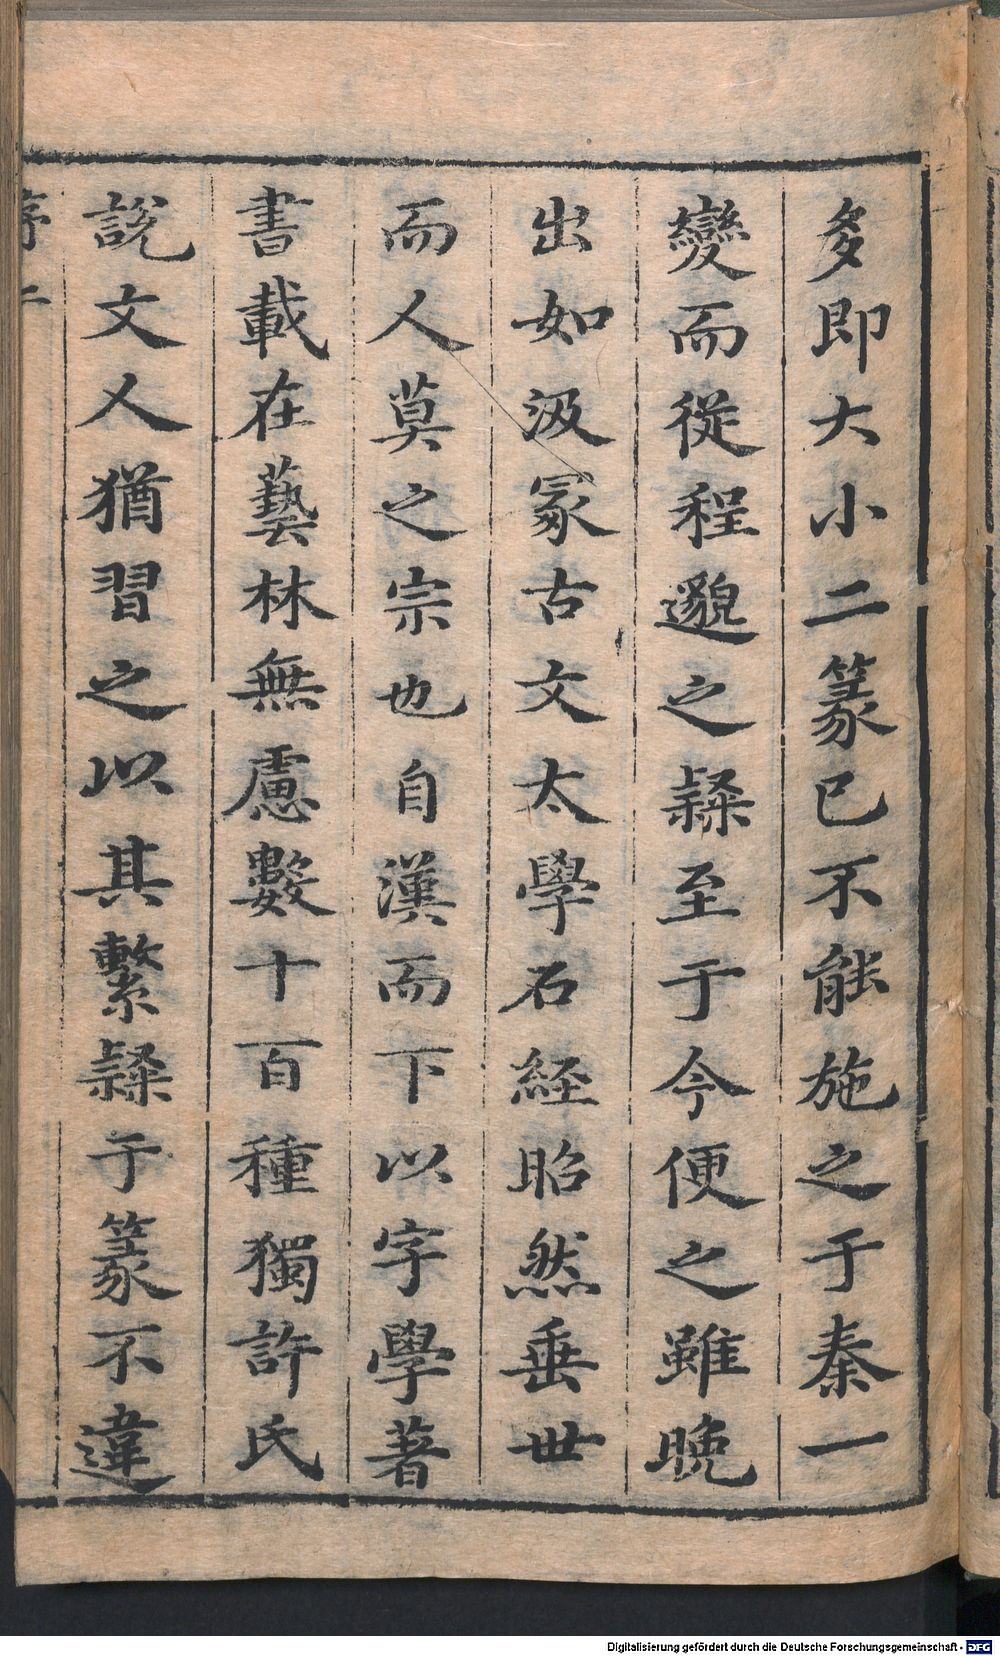 多即大小二篆已不能施之于秦一
變而從程邈之隸至于今便之雖晚
出如汲冢古文太學石經昭然垂世
而人莫之宗也自漢而下以字學著
書載在藝林無慮數十百種獨許氏
說文人猶習之以其繫隸于篆不違
序 二
Digitalisierung gefördert durch die Deutsche Forschungsgemeinschaft - DFG